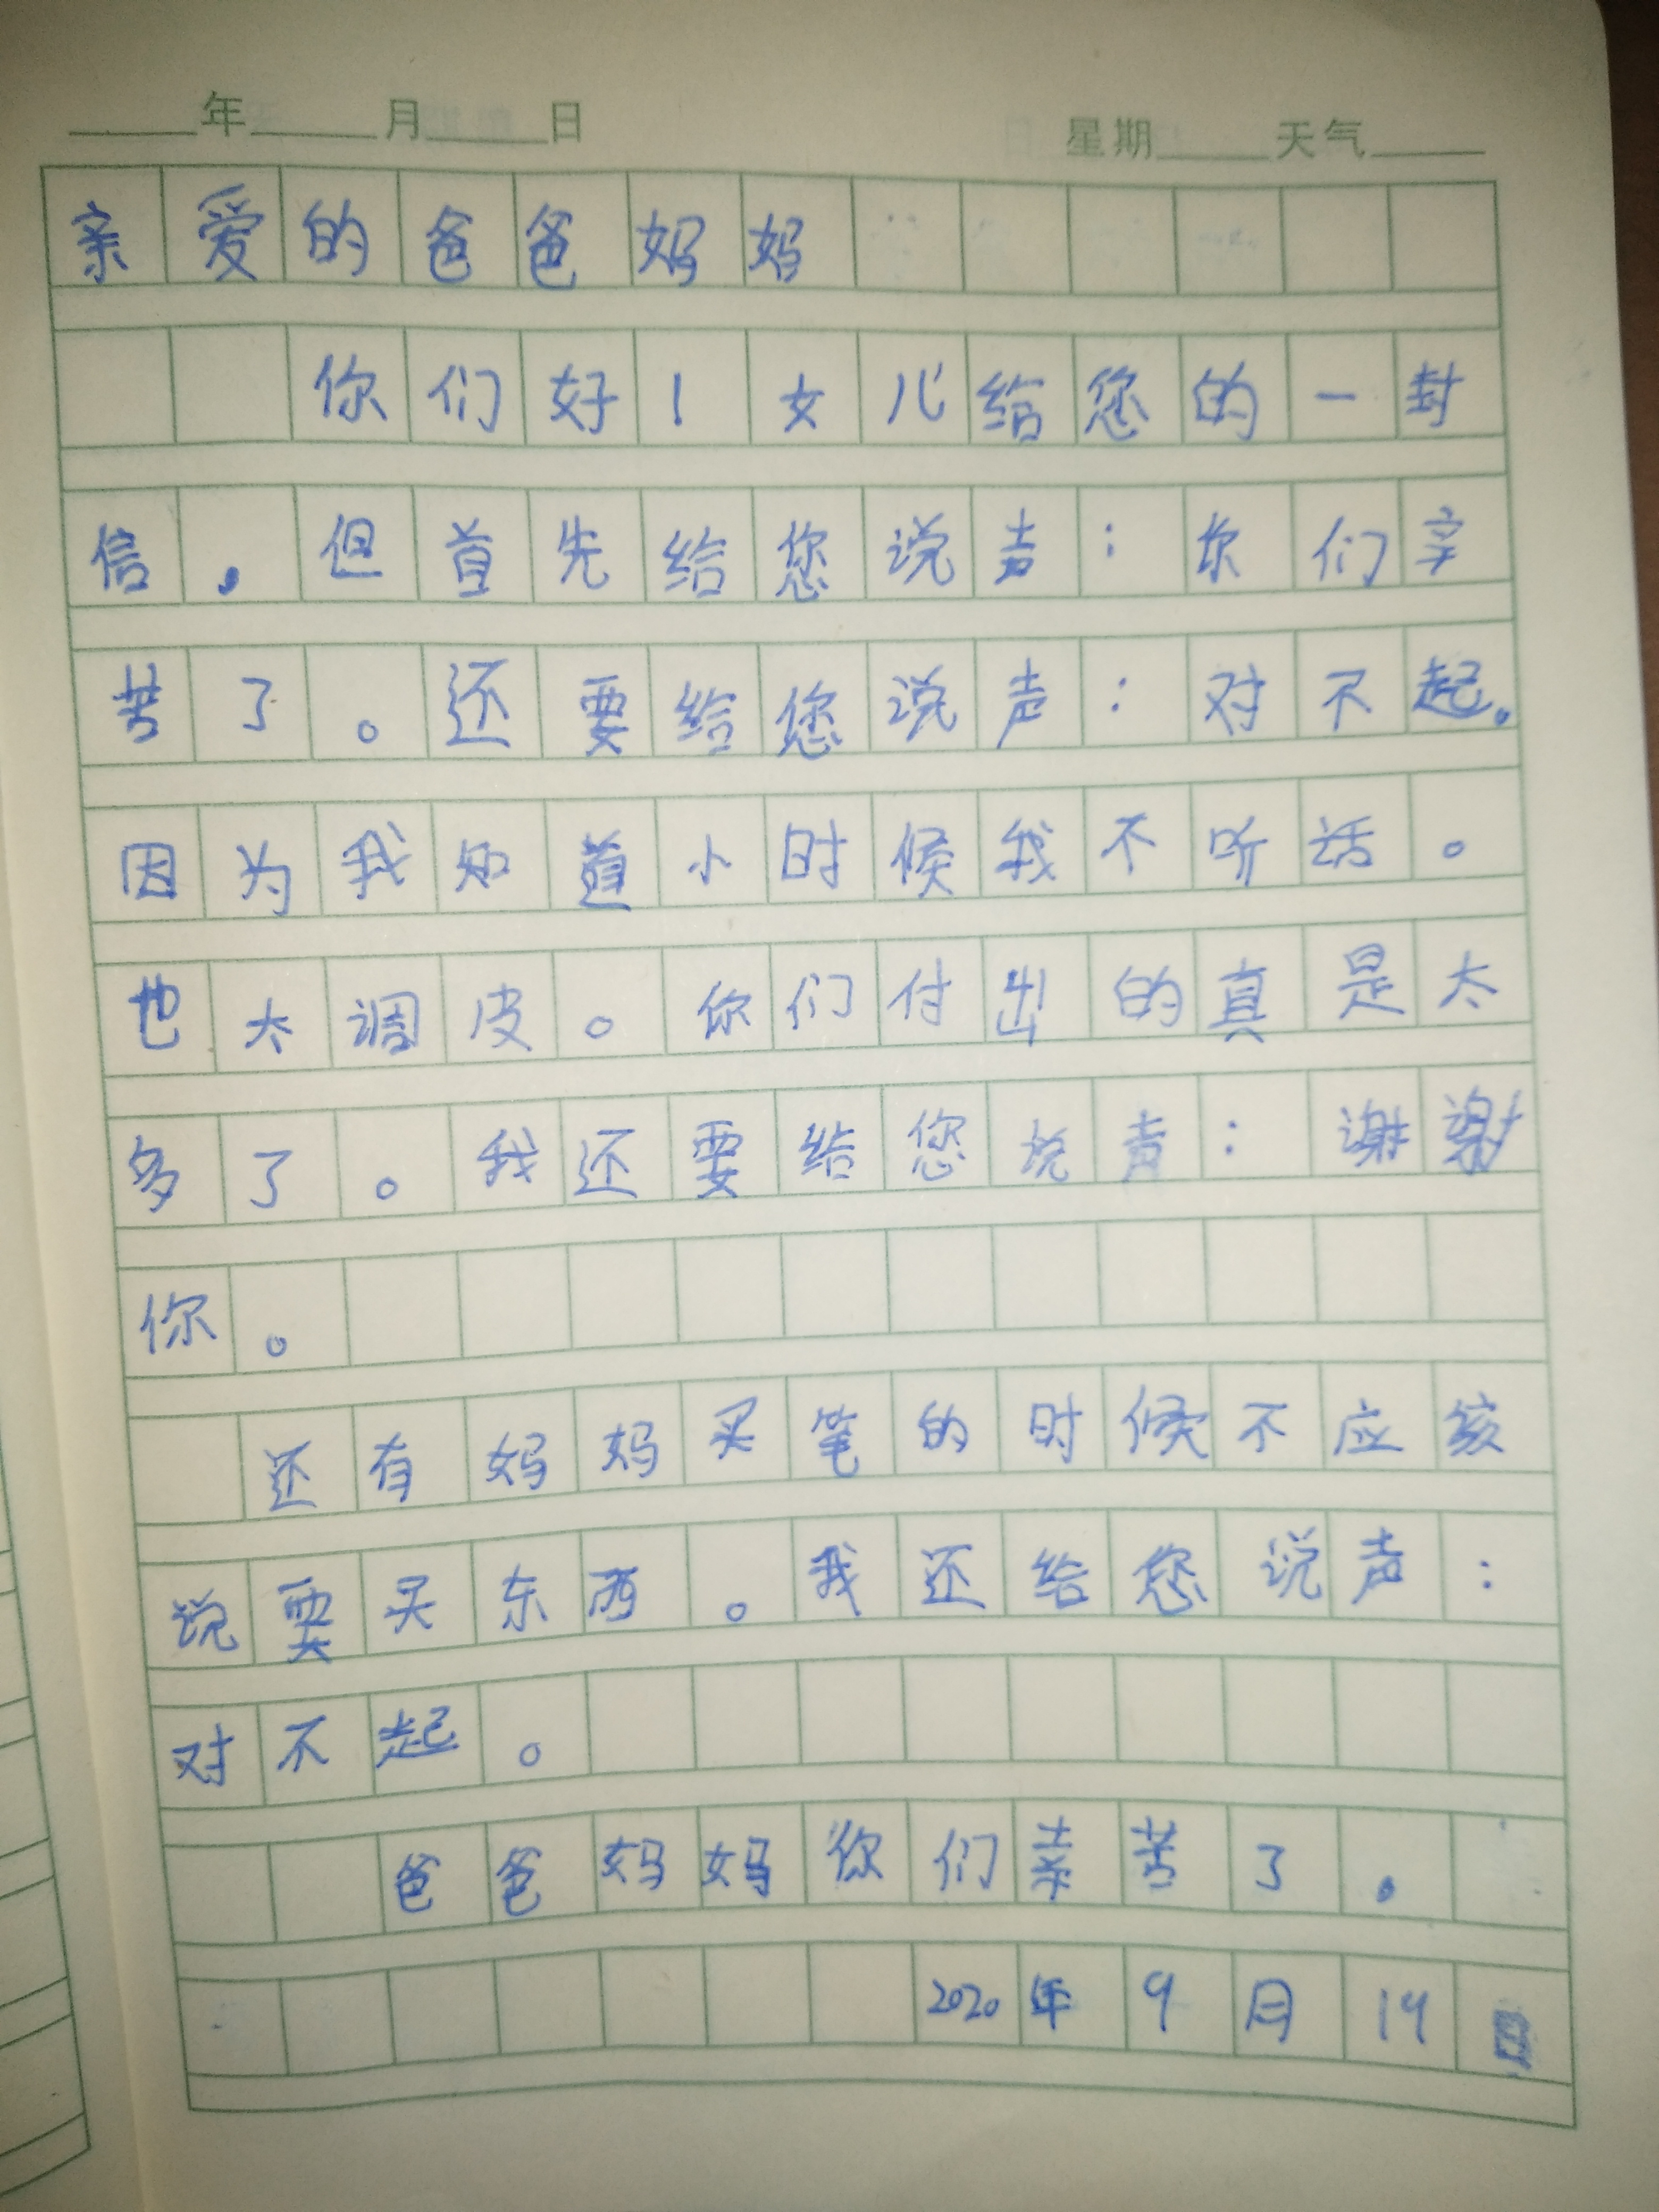 年 月 日 星期 天气
亲爱的爸爸妈妈
你们好！女儿给您的一封
信。但首先给您说声：你们辛
苦了。还要给您说声：对不起。
因为我知道小时候我不听话。
也太调皮。你们付出的真是太
多了。我还要给您说声：谢谢
你。
还有妈妈买笔的时候不应该
说要买东西。我还给您说声：
对不起。
爸爸妈妈你们亲苦了。
2020年9月19日